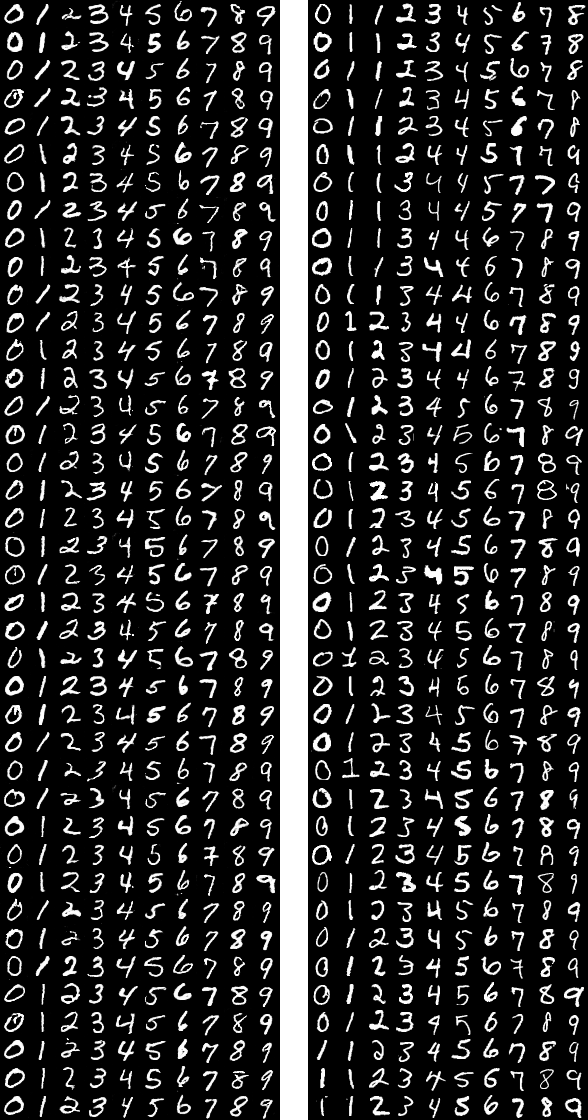 0 1 2 3 4 5 6 7 8 9
0 1 2 3 4 5 6 7 8 9
0 1 2 3 4 5 6 7 8 9
0 1 2 3 4 5 6 7 8 9
0 1 2 3 4 5 6 7 8 9
0 1 2 3 4 5 6 7 8 9
0 1 2 3 4 5 6 7 8 9
0 1 2 3 4 5 6 7 8 9
0 1 2 3 4 5 6 7 8 9
0 1 2 3 4 5 6 7 8 9
0 1 2 3 4 5 6 7 8 9
0 1 2 3 4 5 6 7 8 9
0 1 2 3 4 5 6 7 8 9
0 1 2 3 4 5 6 7 8 9
0 1 2 3 4 5 6 7 8 9
0 1 2 3 4 5 6 7 8 9
0 1 2 3 4 5 6 7 8 9
0 1 2 3 4 5 6 7 8 9
0 1 2 3 4 5 6 7 8 9
0 1 2 3 4 5 6 7 8 9
0 1 2 3 4 5 6 7 8 9
0 1 2 3 4 5 6 7 8 9
0 1 2 3 4 5 6 7 8 9
0 1 2 3 4 5 6 7 8 9
0 1 2 3 4 5 6 7 8 9
0 1 2 3 4 5 6 7 8 9
0 1 2 3 4 5 6 7 8 9
0 1 2 3 4 5 6 7 8 9
0 1 2 3 4 5 6 7 8 9
0 1 2 3 4 5 6 7 8 9
0 1 2 3 4 5 6 7 8 9
0 1 2 3 4 5 6 7 8 9
0 1 2 3 4 5 6 7 8 9
0 1 2 3 4 5 6 7 8 9
0 1 2 3 4 5 6 7 8 9
0 1 2 3 4 5 6 7 8 9
0 1 2 3 4 5 6 7 8 9
0 1 2 3 4 5 6 7 8 9
0 1 2 3 4 5 6 7 8 9
0 1 2 3 4 5 6 7 8 9
0 1 1 2 3 4 5 6 7 8
0 1 1 2 3 4 5 6 7 8
0 1 1 2 3 4 5 6 7 8
0 1 1 2 3 4 5 6 7 8
0 1 1 2 3 4 5 6 7 8
0 1 1 2 4 4 5 7 7 9
0 1 1 3 4 4 5 7 7 9
0 1 1 3 4 4 5 7 7 9
0 1 1 3 4 4 6 7 8 9
0 1 1 3 4 4 6 7 8 9
0 1 1 3 4 4 6 7 8 9
0 1 2 3 4 4 6 7 8 9
0 1 2 3 4 4 6 7 8 9
0 1 2 3 4 4 6 7 8 9
0 1 2 3 4 5 6 7 8 9
0 1 2 3 4 5 6 7 8 9
0 1 2 3 4 5 6 7 8 9
0 1 2 3 4 5 6 7 8 9
0 1 2 3 4 5 6 7 8 9
0 1 2 3 4 5 6 7 8 9
0 1 2 3 4 5 6 7 8 9
0 1 2 3 4 5 6 7 8 9
0 1 2 3 4 5 6 7 8 9
0 1 2 3 4 5 6 7 8 9
0 1 2 3 4 5 6 7 8 9
0 1 2 3 4 5 6 7 8 9
0 1 2 3 4 5 6 7 8 9
0 1 2 3 4 5 6 7 8 9
0 1 2 3 4 5 6 7 8 9
0 1 2 3 4 5 6 7 8 9
0 1 2 3 4 5 6 7 8 9
0 1 2 3 4 5 6 7 8 9
0 1 2 3 4 5 6 7 8 9
0 1 2 3 4 5 6 7 8 9
0 1 2 3 4 5 6 7 8 9
0 1 2 3 4 5 6 7 8 9
0 1 2 3 4 5 6 7 8 9
1 1 2 3 4 5 6 7 8 9
1 1 2 3 4 5 6 7 8 9
1 1 2 3 4 5 6 7 8 9